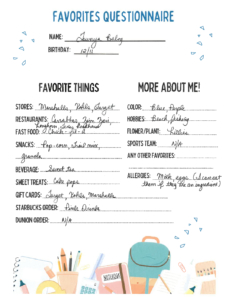 FAVORITES QUESTIONNAIRE
NAME:
BIRTHDAY: 10/11
FAVORITE THINGS
STORES: Marshalls, Kohls, Target
RESTAURANTS: Carrabbas,
FAST FOOD: Chick-fil-a
SNACKS: Pop-corn, trail mix,
granola
BEVERAGE: Sweet tea
SWEET TREATS: Cake pops
GIFT CARDS: Target, Kohls, Marshalls
STARBUCKS ORDER: Pink Drink
DUNKIN ORDER: N/A
MORE ABOUT ME!
COLOR: Blue, Purple
HOBBIES: Beach, fishing
FLOWER/PLANT: Lillies
SPORTS TEAM: N/A
ANY OTHER FAVORITES:
ALLERGIES: Milk, eggs (I can eat
them if they're an ingredient)